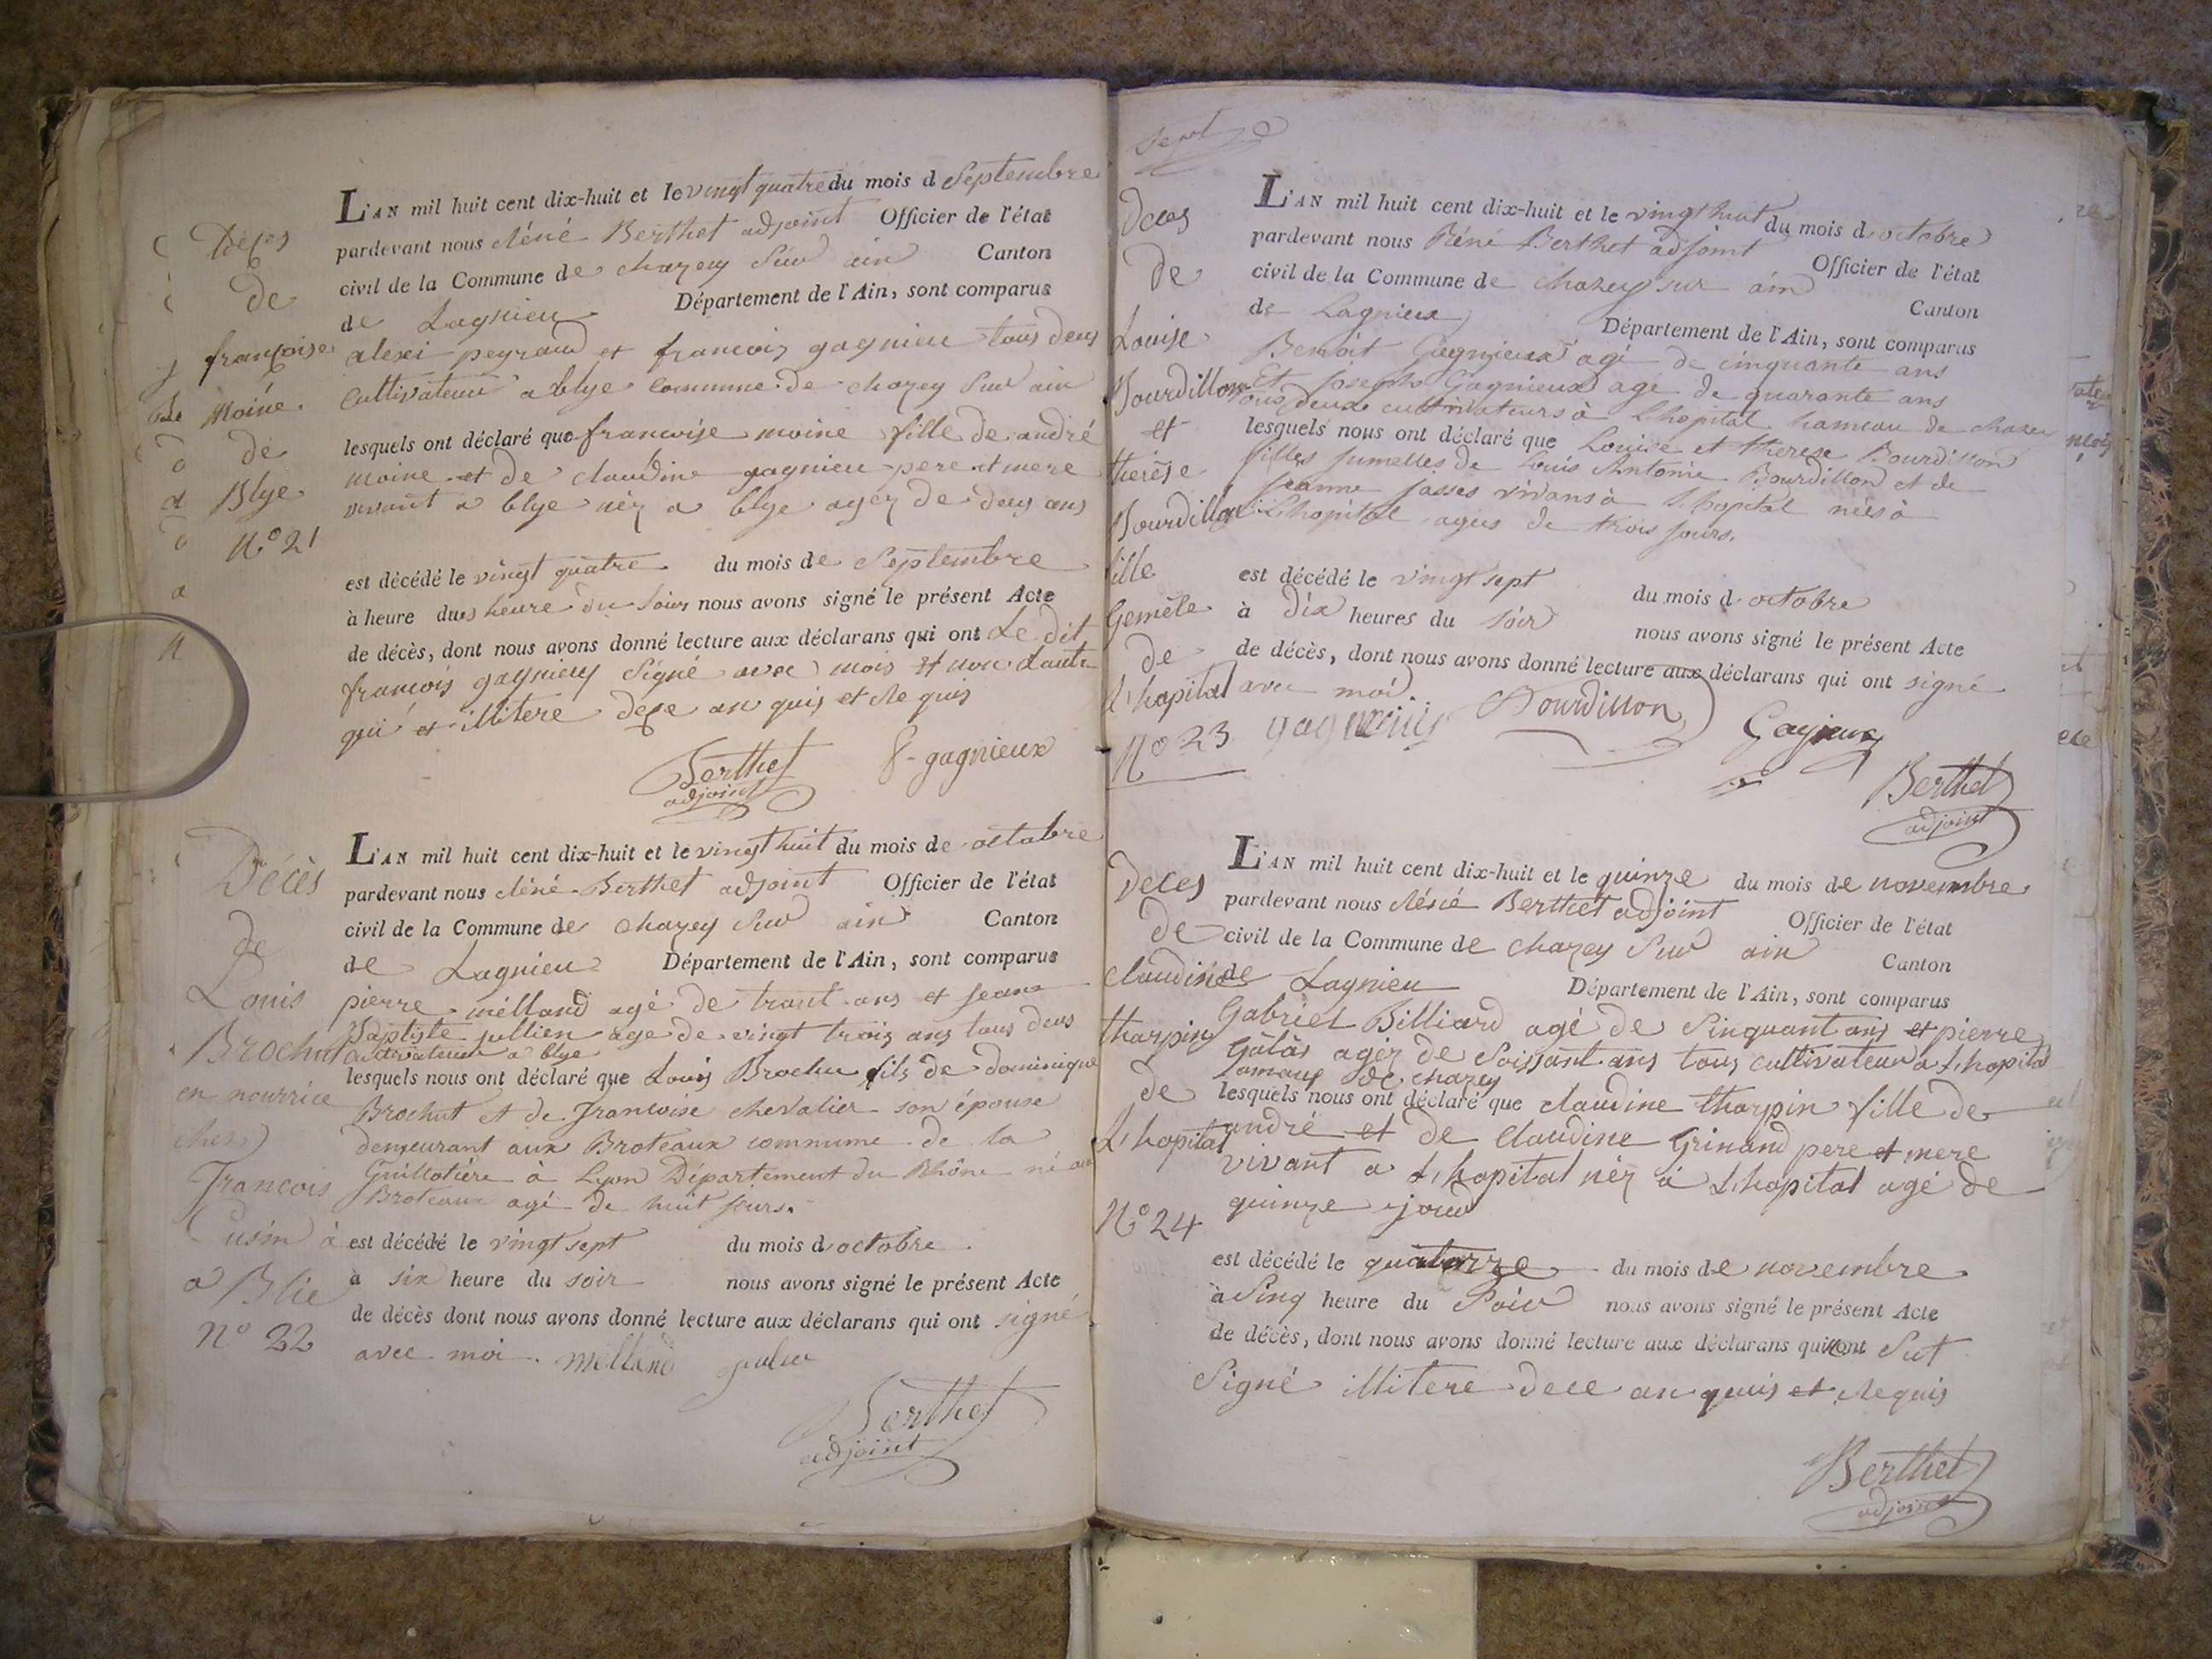 Deces
de
françoise
Moine
de
Blye
N.o 21
L'AN mil huit cent dix-huit et le vingt quatre du mois d Septembre
pardevant nous Réné Berthet adjoint Officier de l'état
civil de la Commune de chazey Sur ain Canton
de Lagnieu Département de l'Ain, sont comparus
alexi peyraud et francois gagnieu tous deus
cultivateur a blye commune de chazey Sur ain
lesquels ont déclaré que francoise moine fille de andré
moine et de claudine gagnieu pere et mere
vivant a blye néz a blye agez de deus ans
est décédé le vingt quatre du mois de Septembre
à heure dues heure du Soir nous avons signé le présent Acte
de décès, dont nous avons donné lecture aux déclarans qui ont Le dit
francois gagnieu Signé avec mois et non Lautre
qui et illitere dece an quis et Re quis
Berthet
adjoint
F. gagnieux
Décès
de
Louis
Brochut
en nourrice
chez
Francois
Cusin à
a Blie
N.o 22
L'AN mil huit cent dix-huit et le vingt huit du mois de octobre
pardevant nous Réné Berthet adjoint Officier de l'état
civil de la Commune de chazey Sur ain Canton
de Lagnieu Département de l'Ain, sont comparus
pierre melland agé de trant ans et Jean
Baptiste jullien age de vingt trois ans tous deus
cultivateur a blye
lesquels nous ont déclaré que Louis Brochu fils de dominique
Brochut et de Francoise chevalier son épouse
demeurant aux Broteaux commune de la
Guillotière à Lyon Département du Rhône né aux
Broteaux agé de huit jours.
est décédé le vingt sept du mois d octobre
à six heure du soir nous avons signé le présent Acte
de décès dont nous avons donné lecture aux déclarans qui ont signé
avec moi. melland
Berthet
adjoint
Sept
Deces
de
Louise
Bourdillon
et
thérèse
Bourdillon
fille
Gemèle
de
L'hopital
N.o 23
L'AN mil huit cent dix-huit et le vingt huit du mois d octobre
pardevant nous Réné Berthet adjoint Officier de l'état
civil de la Commune de chazey sur ain Canton
de Lagnieu Département de l'Ain, sont comparus
Benoit Gagnieux agé de cinquante ans
Et joseph Gagnieux age de quarante ans
tous deux cultivateurs à Lhopital hameau de chazey
lesquels nous ont déclaré que Louise et therese Bourdillon
filles jumelles de Louis Antoine Bourdillon et de
Jeanne Jasses vivans à L'hopital nées à
L'hopital agées de trois jours.
est décédé le vingt sept du mois d octobre
à dix heures du soir nous avons signé le présent Acte
de décès, dont nous avons donné lecture aux déclarans qui ont signé
avec moi.
Bourdillon
Berthet
adjoint
Deces
De
claudine
tharpin
de
L'hopital
N.o 24
L'AN mil huit cent dix-huit et le quinze du mois de novembre
pardevant nous Réné Berthet adjoint Officier de l'état
civil de la Commune de chazey Sur ain Canton
de Lagnieu Département de l'Ain, sont comparus
Gabriel Billiard agé de Sinquant ans et pierre
Galas agéz de Soissant ans tous cultivateur a L'hopital
amaux de chazey
lesquels nous ont déclaré que claudine tharpin fille de
andré et de claudine Grinand pere et mere
vivant a L'hopital néz à L'hopital agé de
quinze jour
est décédé le quatorze du mois de novembre
à Sinq heure du Soir nous avons signé le présent Acte
de décès, dont nous avons donné lecture aux déclarans qui ont Sut
Signé illitere dece an quis et Requis
Berthet
adjoint